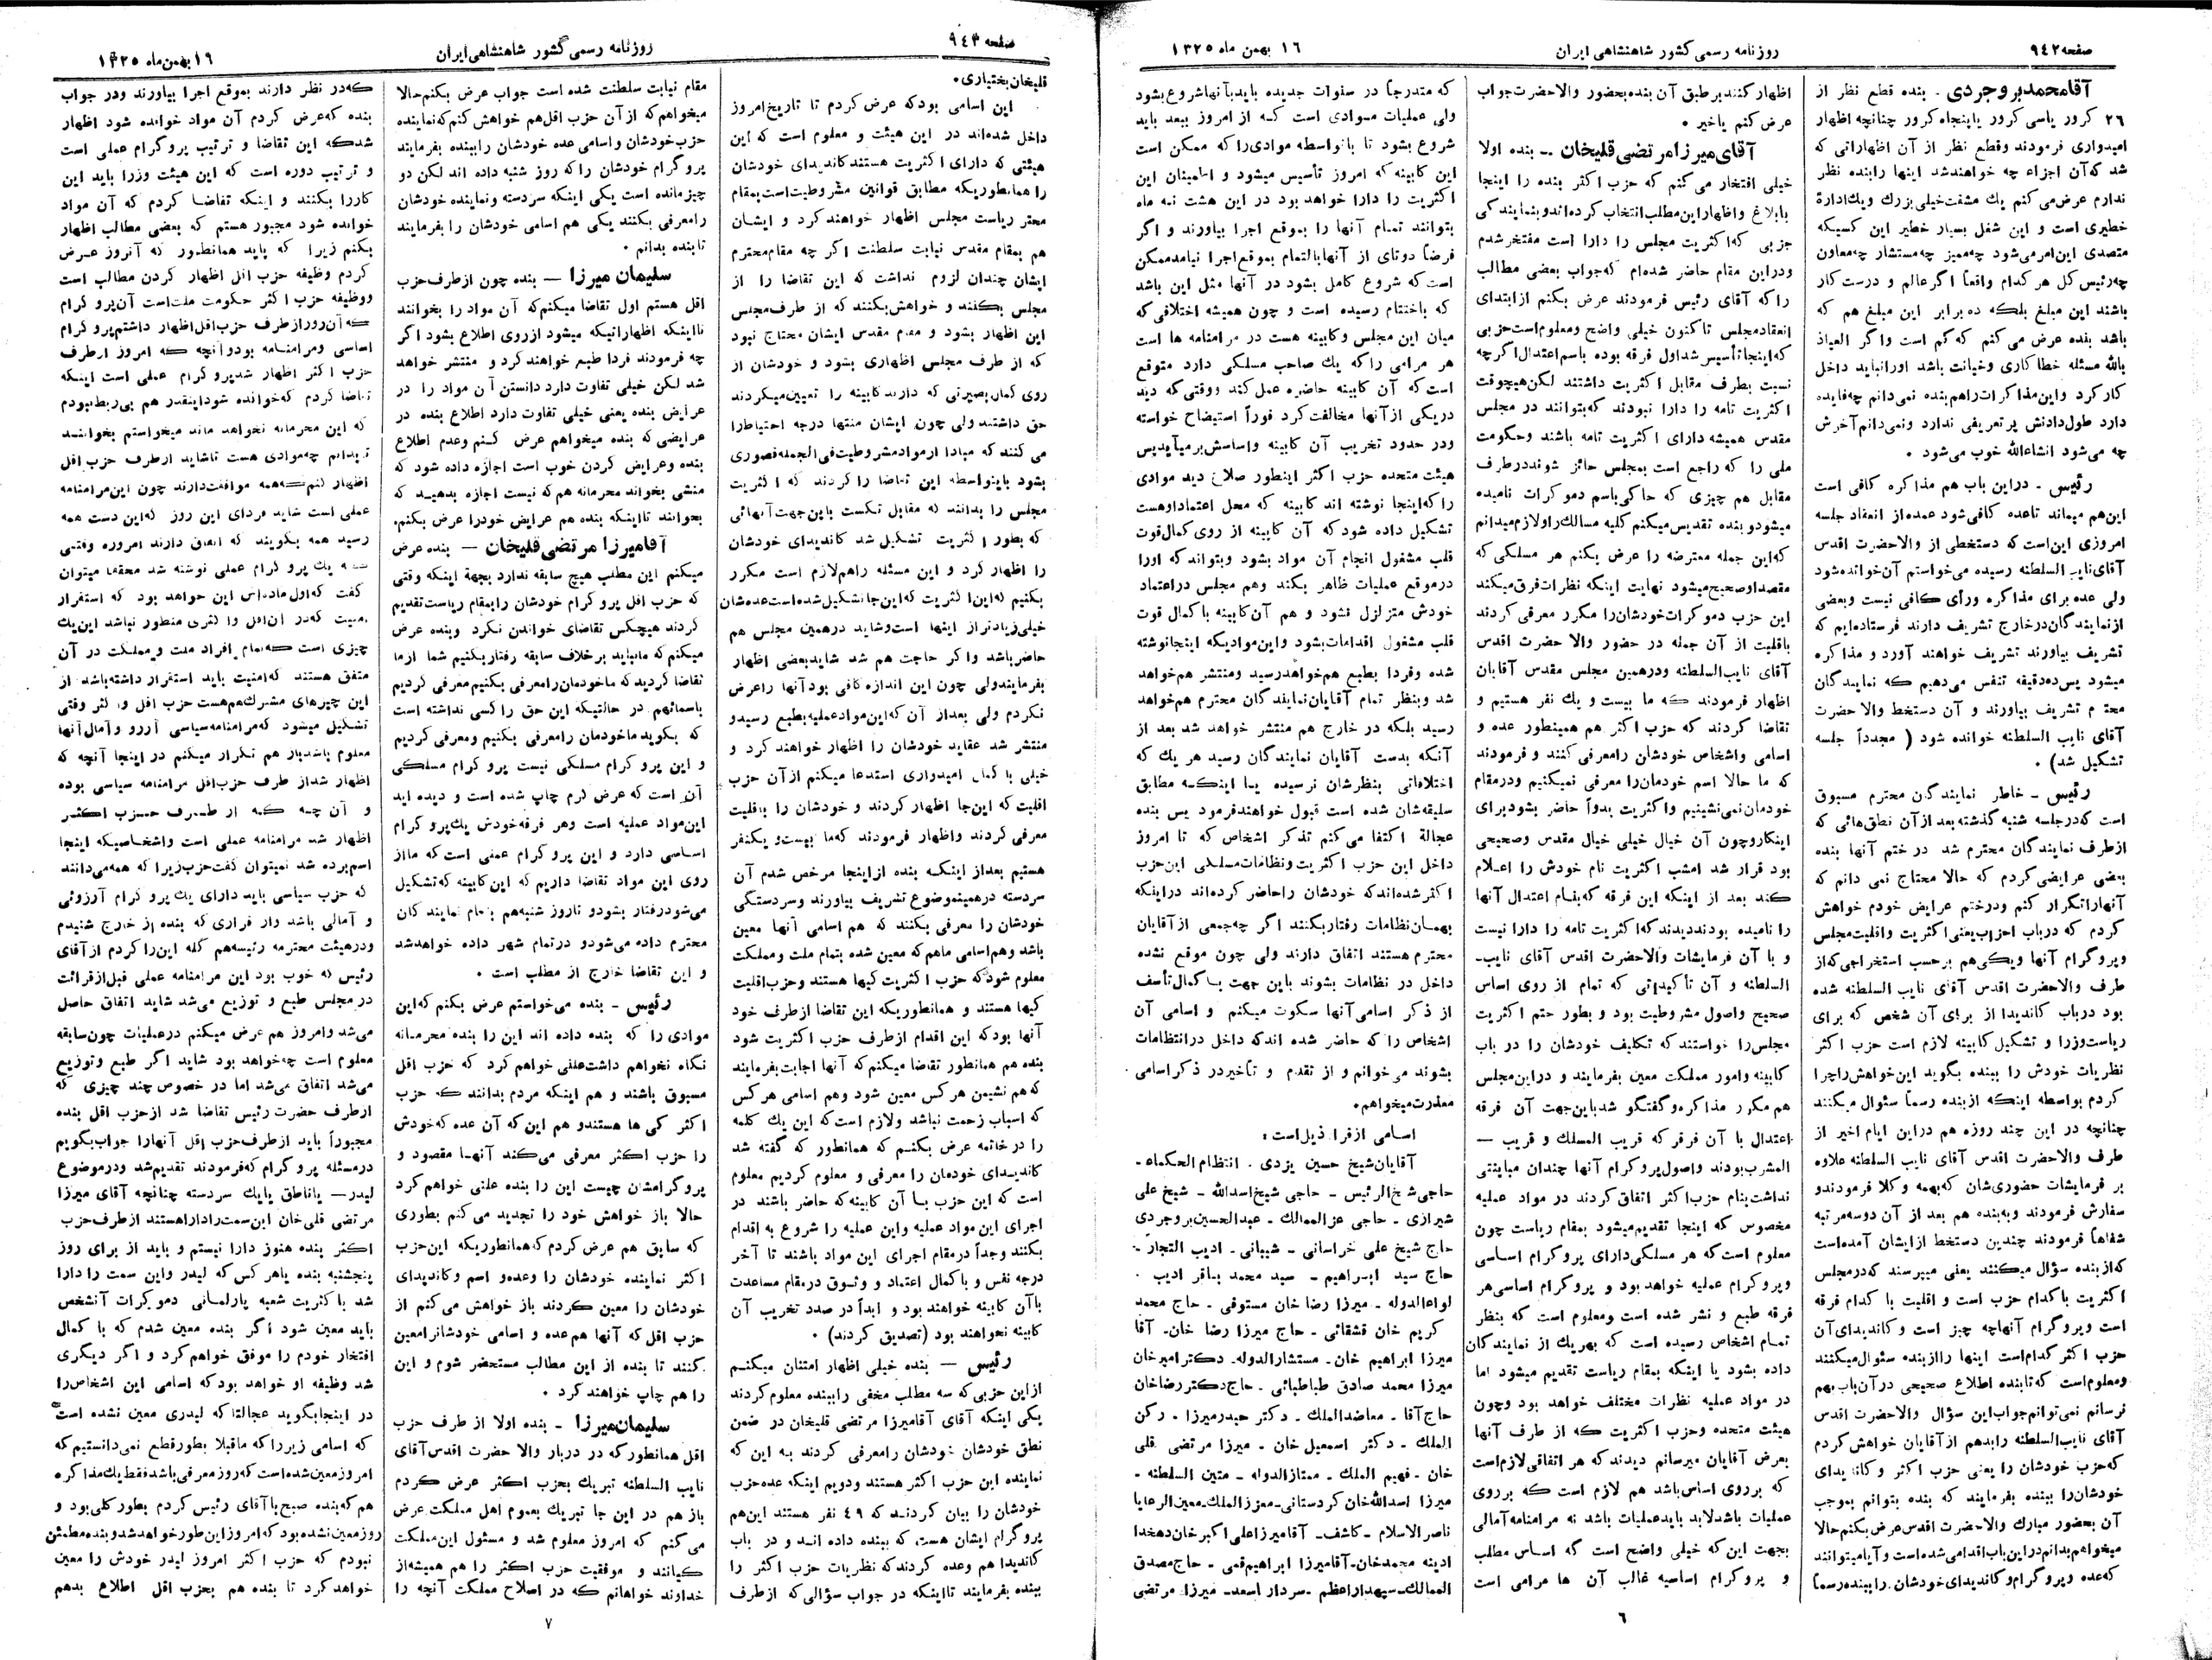 صفحه ۹٤۲
روزنامه رسمی کشور شاهنشاهی ایران
۱٦ بهمن ماه ۱۳۲٥
آقا محمد بروجردی . بنده قطع نظر از
۲٦ کرور یاسی کرور یا پنجاه کرور چنانچه اظهار
امیدواری فرمودند وقطع نظر از آن اظهاراتی که
شد که آن اجزاء چه خواهند شد اینها را بنده نظر
ندارم عرض می کنم یك مشقت خیلی بزرك و یك ادارهٔ
خطیری است و این شغل بسیار خطیر این کسیکه
متصدی این امر می شود چه ممیز چه مستشار چه معاون
چه رئیس کل هر کدام واقعاً اگر عالم و درست کار
باشند این مبلغ بلکه ده برابر این مبلغ هم که
باشد بنده عرض می کنم که کم است واگر العیاذ
بالله مسئله خطا کاری وخیانت باشد اورا نباید داخل
کار کرد واین مذاکرات راهم بنده نمی دانم چه فایده
دارد طول دادنش پر تعریفی ندارد ونمی دانم آخرش
چه می شود انشاءالله خوب می شود .
رئیس . در این باب هم مذاکره کافی است
این هم میماند تاعده کافی شود عمده از انعقاد جلسه
امروزی این است که دستخطی از والاحضرت اقدس
آقای نایب السلطنه رسیده می خواستم آن خوانده شود
ولی عده برای مذاکره ورأی کافی نیست وبعضی
از نمایندگان در خارج تشریف دارند فرستاده ایم که
تشریف بیاورند تشریف خواهند آورد و مذاکره
میشود پس ده دقیقه تنفس می دهیم که نمایندگان
محترم تشریف بیاورند و آن دستخط والاحضرت
آقای نایب السلطنه خوانده شود ( مجدداً جلسه
تشکیل شد) .
رئیس – خاطر نمایندگان محترم مسبوق
است که در جلسه شنبه گذشته بعد از آن نطق هائی که
از طرف نمایندگان محترم شد در ختم آنها بنده
بعضی عرایضی کردم که حالا محتاج نمی دانم که
آنها را تکرار کنم ودر ختم عرایض خودم خواهش
کردم که در باب احزاب یعنی اکثریت واقلیت مجلس
وپروگرام آنها ویکی هم بر حسب استخراجی که از
طرف والاحضرت اقدس آقای نایب السلطنه شده
بود در باب کاندیدا از برای آن شخص که برای
ریاست وزرا و تشکیل کابینه لازم است حزب اکثر
نظریات خودش را ببنده بگوید این خواهش را چرا
کردم بواسطه اینکه از بنده رسماً سئوال میکنند
چنانچه در این چند روزه هم در این ایام اخیر از
طرف والاحضرت اقدس آقای نایب السلطنه علاوه
بر فرمایشات حضوری شان که بهمه وکلا فرمودند و
سفارش فرمودند وبه بنده هم بعد از آن دوسه مرتبه
شفاهاً فرمودند چندین دستخط از ایشان آمده است
که از بنده سؤال میکنند یعنی میپرسند که در مجلس
اکثریت با کدام حزب است و اقلیت با کدام فرقه
است وپروگرام آنها چه چیز است و کاندیدای آن
حزب اکثر کدام است اینها را از بنده سئوال میکنند
ومعلوم است که تا بنده اطلاع صحیحی در آن باب بهم
نرسانم نمی توانم جواب این سؤال والاحضرت اقدس
آقای نایب السلطنه را بدهم از آقایان خواهش کردم
که حزب خودشان را یعنی حزب اکثر و کاندیدای
خودشان را ببنده بفرمایند که بنده بتوانم بموجب
آن بحضور مبارك والاحضرت اقدس عرض بکنم حالا
میخواهم بدانم در این باب اقدامی شده است و آیا میتوانند
که عده وپروگرام وکاندیدای خودشان را ببنده رسماً
اظهار کنند بر طبق آن بنده بحضور والاحضرت جواب
عرض کنم یاخیر .
آقای میرزا مرتضی قلیخان ــ بنده اولا
خیلی افتخار می کنم که حزب اکثر بنده را اینجا
بابلاغ واظهار این مطلب انتخاب کرده اند و بنمایندگی
حزبی که اکثریت مجلس را دارا است مفتخر شدم
ودراین مقام حاضر شده ام که جواب بعضی مطالب
را که آقای رئیس فرمودند عرض بکنم از ابتدای
انعقاد مجلس تا کنون خیلی واضح ومعلوم است حزبی
که اینجا تأسیس شد اول فرقه بوده باسم اعتدال اگرچه
نسبت بطرف مقابل اکثریت داشتند لکن هیچوقت
اکثریت تامه را دارا نبودند که بتوانند در مجلس
مقدس همیشه دارای اکثریت تامه باشند وحکومت
ملی را که راجع است بمجلس حائز شوند در طرف
مقابل هم چیزی که حاکی باسم دموکرات نامیده
میشود و بنده تقدیس میکنم کلیه مسالك را و لازم میدانم
که این جمله معترضه را عرض بکنم هر مسلکی که
مقصد او صحیح میشود نهایت اینکه نظرات فرق میکند
این حزب دموکرات خودشان را مکرر معرفی کردند
باقلیت از آن جمله در حضور والا حضرت اقدس
آقای نایب السلطنه ودرهمین مجلس مقدس آقایان
اظهار فرمودند که ما بیست و یك نفر هستیم و
تقاضا کردند که حزب اکثر هم همینطور عده و
اسامی واشخاص خودشان را معرفی کنند و فرمودند
که ما حالا اسم خودمان را معرفی نمیکنیم ودرمقام
خودمان نمی نشینیم واکثریت بدواً حاضر بشود برای
اینکار وچون آن خیال خیلی خیال مقدس وصحیحی
بود قرار شد امشب اکثریت نام خودش را اعلام
کند بعد از اینکه این فرقه که بنام اعتدال آنها
را نامیده بودند دیدند که اکثریت تامه را دارا نیست
و با آن فرمایشات والاحضرت اقدس آقای نایب-
السلطنه و آن تأکیداتی که تمام از روی اساس
صحیح واصول مشروطیت بود و بطور حتم اکثریت
مجلس را خواستند که تکلیف خودشان را در باب
کابینه وامور مملکت معین بفرمایند و دراین مجلس
هم مکرر مذاکره وگفتگو شد باین جهت آن فرقه
اعتدال با آن فرقر که قریب المسلك و قریب –
المشرب بودند واصول پروگرام آنها چندان مباینتی
نداشت بنام حزب اکثر اتفاق کردند در مواد عملیه
مخصوص که اینجا تقدیم میشود بمقام ریاست چون
معلوم است که هر مسلکی دارای پروگرام اساسی
وپروگرام عملیه خواهد بود و پروگرام اساسی هر
فرقه طبع و نشر شده است ومعلوم است که بنظر
تمام اشخاص رسیده است که بهریك از نمایندگان
داده بشود یا اینکه بمقام ریاست تقدیم میشود اما
در مواد عملیه نظرات مختلف خواهد بود وچون
هیئت متحده وحزب اکثریت که از طرف آنها
بعرض آقایان میرسانم دیدند که هر اتفاقی لازم است
که بر روی اساس باشد هم لازم است که بر روی
عملیات باشد لابد باید عملیات باشد نه مرامنامه آمالی
بجهت این که خیلی واضح است که اساس مطلب
و پروگرام اساسیه غالب آن ها مرامی است
که متدرجاً در سنوات جدیده باید بآنها شروع بشود
ولی عملیات موادی است که از امروز ببعد باید
شروع بشود تا بانواسطه موادی را که ممکن است
این کابینه که امروز تأسیس میشود و اطمینان این
اکثریت را دارا خواهد بود در این هشت نه ماه
بتوانند تمام آنها را بموقع اجرا بیاورند و اگر
فرضاً دوتای از آنها بالتمام بموقع اجرا نیامد ممکن
است که شروع کامل بشود در آنها مثل این باشد
که باختتام رسیده است و چون همیشه اختلافی که
میان این مجلس وکابینه هست در مرامنامه ها است
هر مرامی را که یك صاحب مسلکی دارد متوقع
است که آن کابینه حاضره عمل کند ووقتی که دید
در یکی از آنها مخالفت کرد فوراً استیضاح خواسته
ودر حدود تخریب آن کابینه و اساسش بر میآید پس
هیئت متحده حزب اکثر اینطور صلاح دید موادی
را که اینجا نوشته اند کابینه که محل اعتماد اوهست
تشکیل داده شود که آن کابینه از روی کمال قوت
قلب مشغول انجام آن مواد بشود وبتواند که اورا
درموقع عملیات ظاهر بکند وهم مجلس در اعتماد
خودش متزلزل نشود و هم آن کابینه با کمال قوت
قلب مشغول اقدامات بشود واین موادیکه اینجا نوشته
شده وفردا بطبع هم خواهد رسید ومنتشر هم خواهد
شد وبنظر تمام آقایان نمایندگان محترم هم خواهد
رسید بلکه در خارج هم منتشر خواهد شد بعد از
آنکه بدست آقایان نمایندگان رسید هر یك که
اختلافاتی بنظرشان نرسیده یا اینکه مطابق
سلیقه شان شده است قبول خواهند فرمود پس بنده
عجالة اکتفا می کنم تذکر اشخاص که تا امروز
داخل این حزب اکثریت ونظامات مسلکی این حزب
اکثر شده اند که خودشان را حاضر کرده اند در اینکه
بهمان نظامات رفتار بکنند اگر چه جمعی از آقایان
محترم هستند اتفاق دارند ولی چون موقع نشده
داخل در نظامات بشوند باین جهت با کمال تأسف
از ذکر اسامی آنها سکوت میکنم و اسامی آن
اشخاص را که حاضر شده اند که داخل در انتظامات
بشوند می خوانم و از تقدم و تأخیر در ذکر اسامی
معذرت میخواهم .
اسامی از قرا ذیل است :
آقایان شیخ حسین یزدی . انتظام الحکماء -
حاجی شیخ الرئیس - حاجی شیخ اسدالله - شیخ علی
شیرازی - حاجی عز الممالك - عبدالحسین بروجردی
حاج شیخ علی خراسانی - شیبانی - ادیب التجار -
حاج سید ابراهیم - سید محمد باقر ادیب .
لواءالدوله - میرزا رضا خان مستوفی - حاج محمد
کریم خان قشقائی - حاج میرزا رضا خان - آقا
میرزا ابراهیم خان - مستشارالدوله - دکتر امیرخان
میرزا محمد صادق طباطبائی - حاج دکتر رضاخان
حاج آقا - معاضدالملك - دکتر حیدرمیرزا . رکن
الملك - دکتر اسمعیل خان - میرزا مرتضی قلی
خان - فهیم الملك - ممتاز الدوله - متین السلطنه -
میرزا اسدالله خان کردستانی - معزز الملك - معین الرعایا
ناصر الاسلام - کاشف - آقا میرزا علی اکبر خان دهخدا
ادینه محمد خان - آقا میرزا ابراهیم قمی - حاج مصدق
الممالك - سپهدار اعظم - سردار اسعد - میرزا مرتضی
٦
صفحه ۹٤۳
روزنامه رسمی کشور شاهنشاهی ایران
۱٦ بهمن ماه ۱۳۲٥
قلیخان بختیاری .
این اسامی بود که عرض کردم تا تاریخ امروز
داخل شده اند در این هیئت و معلوم است که این
هیئتی که دارای اکثریت هستند کاندیدای خودشان
را همانطوریکه مطابق قوانین مشروطیت است بمقام
محتر ریاست مجلس اظهار خواهند کرد و ایشان
هم بمقام مقدس نیابت سلطنت اگر چه مقام محترم
ایشان چندان لزوم نداشت که این تقاضا را از
مجلس بکنند و خواهش بکنند که از طرف مجلس
این اظهار بشود و مقام مقدس ایشان محتاج نبود
که از طرف مجلس اظهاری بشود و خودشان از
روی کمال بصیرتی که دارند کابینه را تعیین میکردند
حق داشتند ولی چون ایشان منتها درجه احتیاط را
می کنند که مبادا از مواد مشروطیت فی الجمله قصوری
بشود باینواسطه این تقاضا را کردند که اکثریت
مجلس را بدانند که مقابل نکست باین جهت آنهائی
که بطور اکثریت تشکیل شد کاندیدای خودشان
را اظهار کرد و این مسئله راهم لازم است مکرر
بکنیم که این اکثریت که این جا تشکیل شده است عده شان
خیلی زیادتر از اینها است وشاید درهمین مجلس هم
حاضر باشد واگر حاجت هم شد شاید بعضی اظهار
بفرمایند ولی چون این اندازه کافی بود آنها را عرض
نکردم ولی بعد از آن که این مواد عملیه بطبع رسید و
منتشر شد عقاید خودشان را اظهار خواهند کرد و
خیلی با کمال امیدواری استدعا میکنم از آن حزب
اقلیت که این جا اظهار کردند و خودشان را باقلیت
معرفی کردند واظهار فرمودند که ما بیست و یکنفر
هستیم بعد از اینکه بنده از اینجا مرخص شدم آن
سردسته درهمینموضوع تشریف بیاورند وسردستگی
خودشان را معرفی بکنند که هم اسامی آنها معین
باشد وهم اسامی ماهم که معین شده بتمام ملت ومملکت
معلوم شود که حزب اکثریت کیها هستند و حزب اقلیت
کیها هستند و همانطوریکه این تقاضا از طرف خود
آنها بود که این اقدام از طرف حزب اکثریت شود
بنده هم همانطور تقاضا میکنم که آنها اجابت بفرمایند
که هم نشیمن هر کس معین شود وهم اسامی هر کس
که اسباب زحمت نباشد ولازم است که این یك کلمه
را در خاتمه عرض بکنم که همانطور که گفته شد
کاندیدای خودمان را معرفی و معلوم کردیم معلوم
است که این حزب با آن کابینه که حاضر باشند در
اجرای این مواد عملیه واین عملیه را شروع به اقدام
بکنند وجداً در مقام اجرای این مواد باشند تا آخر
درجه نفس و با کمال اعتماد و وثوق در مقام مساعدت
با آن کابینه خواهند بود و ابداً در صدد تخریب آن
کابینه نخواهند بود (تصدیق کردند) .
رئیس – بنده خیلی اظهار امتنان میکنم
از این حزبی که سه مطلب مخفی را ببنده معلوم کردند
یکی اینکه آقای آقا میرزا مرتضی قلیخان در ضمن
نطق خودشان خودشان را معرفی کردند به این که
نماینده این حزب اکثر هستند ودویم اینکه عده حزب
خودشان را بیان کردند که ٤۹ نفر هستند این هم
پروگرام ایشان هست که ببنده داده اند و در باب
کاندیدا هم وعده کردند که نظریات حزب اکثر را
ببنده بفرمایند تا اینکه در جواب سؤالی که از طرف
مقام نیابت سلطنت شده است جواب عرض بکنم حالا
میخواهم که از آن حزب اقل هم خواهش کنم که نماینده
حزب خودشان و اسامی عده خودشان را ببنده بفرمایند
پروگرام خودشان را که روز شنبه داده اند لکن دو
چیز مانده است یکی اینکه سردسته ونماینده خودشان
را معرفی بکنند یکی هم اسامی خودشان را بفرمایند
تا بنده بدانم .
سلیمان میرزا – بنده چون از طرف حزب
اقل هستم اول تقاضا میکنم که آن مواد را بخوانند
تا اینکه اظهاراتیکه میشود از روی اطلاع بشود اگر
چه فرمودند فردا طبع خواهند کرد و منتشر خواهد
شد لکن خیلی تفاوت دارد دانستن آن مواد را در
عرایض بنده یعنی خیلی تفاوت دارد اطلاع بنده در
عرایضی که بنده میخواهم عرض کنم وعدم اطلاع
بنده وعرایض کردن خوب است اجازه داده شود که
منشی بخواند محرمانه هم که نیست اجازه بدهید که
بخوانند تا اینکه بنده هم عرایض خودرا عرض بکنم .
آقا میرزا مرتضی قلیخان – بنده عرض
میکنم این مطلب هیچ سابقه ندارد بجهة اینکه وقتی
که حزب اقل پروگرام خودشان را بمقام ریاست تقدیم
کردند هیچکس تقاضای خواندن نکرد وبنده عرض
میکنم که ماباید بر خلاف سابقه رفتار بکنیم شما از ما
تقاضا کردید که ما خودمان را معرفی بکنیم معرفی کردیم
باسمائهم در حالتیکه این حق را کسی نداشته است
که بگوید ما خودمان را معرفی بکنیم ومعرفی کردیم
و این پروگرام مسلکی نیست پروگرام مسلکی
آن است که عرض کرم چاپ شده است و دیده اید
این مواد عملیه است وهر فرقه خودش یك پروگرام
اساسی دارد و این پروگرام عملی است که ما از
روی این مواد تقاضا داریم که این کابینه که تشکیل
می شود رفتار بشود و تا روز شنبه هم بتمام نمایندگان
محترم داده می شود و در تمام شهر داده خواهد شد
و این تقاضا خارج از مطلب است .
رئیس - بنده می خواستم عرض بکنم که این
موادی را که بنده داده اند این را بنده محرمانه
نگاه نخواهم داشت علنی خواهم کرد که حزب اقل
مسبوق باشند و هم اینکه مردم بدانند که حزب
اکثر کی ها هستند و هم این که آن عده که خودش
را حزب اکثر معرفی می کند آنها مقصود و
پروگرامشان چیست این را بنده علنی خواهم کرد
حالا باز خواهش خود را تجدید می کنم بطوری
که سابق هم عرض کردم که همانطوریکه این حزب
اکثر نماینده خودشان را وعده و اسم وکاندیدای
خودشان را معین کردند باز خواهش می کنم از
حزب اقل که آنها هم عده و اسامی خودشانرا معین
کنند تا بنده از این مطالب مستحضر شوم و این
را هم چاپ خواهند کرد .
سلیمان میرزا - بنده اولا از طرف حزب
اقل همانطور که در دربار والا حضرت اقدس آقای
نایب السلطنه تبریك بحزب اکثر عرض کردم
باز هم در این جا تبریك بعموم اهل مملکت عرض
می کنم که امروز معلوم شد و مسئول این مملکت
کیانند و موفقیت حزب اکثر را هم همیشه از
خداوند خواهانم که در اصلاح مملکت آنچه را
که در نظر دارند بموقع اجرا بیاورند ودر جواب
بنده که عرض کردم آن مواد خوانده شود اظهار
شد که این تقاضا و ترتیب پروگرام عملی است
و ترتیب دوره است که این هیئت وزرا باید این
کار را بکنند و اینکه تقاضا کردم که آن مواد
خوانده شود مجبور هستم که بعضی مطالب اظهار
بکنم زیرا که باید همانطور که آنروز عرض
کردم وظیفه حزب اقل اظهار کردن مطالب است
ووظیفه حزب اکثر حکومت ملت است آن پروگرام
که آن روز از طرف حزب اقل اظهار داشتم پروگرام
اساسی ومرامنامه بود و آنچه که امروز از طرف
حزب اکثر اظهار شد پروگرام عملی است اینکه
تقاضا کردم که خوانده شود اینقدر هم بی ربط نبودم
که این محرمانه نخواهد ماند میخواستم بخوانند
تا بدانم چه موادی هست تا شاید از طرف حزب اقل
اظهار کنم که همه موافقت دارند چون این مرامنامه
عملی است شاید فردای این روز که این دست همه
رسید همه بگویند که اتفاق دارند امروزه وقتی
که یك پروگرام عملی نوشته شد محققاً میتوان
گفت که اول ماده اش این خواهد بود که استقرار
امنیت که در آن اقل واکثری منظور نباشد این یك
چیزی است که تمام افراد ملت ومملکت در آن
متفق هستند که امنیت باید استقرار داشته باشد از
این چیزهای مشترك هم هست حزب اقل واکثر وقتی
تشکیل میشود که مرامنامه سیاسی آرزو وآمال آنها
معلوم باشد باز هم تکرار میکنم در اینجا آنچه که
اظهار شد از طرف حزب اقل مرامنامه سیاسی بوده
و آن چه که از طرف حزب اکثر
اظهار شد مرامنامه عملی است واشخاصیکه اینجا
اسم برده شد نمیتوان گفت حزب زیرا که همه می دانند
که حزب سیاسی باید دارای یك پروگرام آرزوئی
و آمالی باشد وار قراری که بنده از خارج شنیدم
ودر هیئت محترمه رئیسه هم گله این را کردم از آقای
رئیس که خوب بود این مرامنامه عملی قبل از قرائت
در مجلس طبع و توزیع می شد شاید اتفاق حاصل
می شد وامروز هم عرض میکنم در عملیات چون سابقه
معلوم است چه خواهد بود شاید اگر طبع وتوزیع
می شد اتفاق می شد اما در خصوص چند چیزی که
از طرف حضرت رئیس تقاضا شد از حزب اقل بنده
مجبوراً باید از طرف حزب اقل آنها را جواب بگویم
در مسئله پروگرام که فرمودند تقدیم شد ودر موضوع
لیدر — یا ناطق یا یك سردسته چنانچه آقای میرزا
مرتضی قلی خان این سمت را دارا هستند از طرف حزب
اکثر بنده هنوز دارا نیستم و باید از برای روز
پنجشنبه بنده یا هر کس که لیدر واین سمت را دارا
شد با کثریت شعبه پارلمانی دموکرات آنشخص
باید معین شود اگر بنده معین شدم که با کمال
افتخار خودم را موفق خواهم کرد و اگر دیگری
شد وظیفه او خواهد بود که اسامی این اشخاص را
در اینجا بگوید عجالةً که لیدری معین نشده است
که اسامی زیرا که ماقبلا بطور قطع نمی دانستیم که
امروز معین شده است که روز معرفی باشد فقط یك مذاکره
هم که بنده صبح با آقای رئیس کردم بطور کلی بود و
روز معین نشده بود که امروز این طور خواهد شد و بنده مطمئن
نبودم که حزب اکثر امروز لیدر خودش را معین
خواهد کرد تا بنده هم بحزب اقل اطلاع بدهم
۷